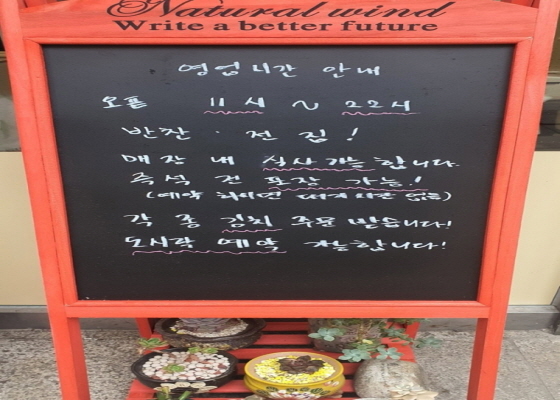 Natural wind
Write a better future
영업시간 안내
오픈 11시 ~ 22시
반찬 · 전 집!
매장 내 식사가능 합니다.
즉석 전 포장 가능!
(예약 하시면 대기시간 없음)
각종 김치 주문 받습니다!
도시락 예약 가능합니다!